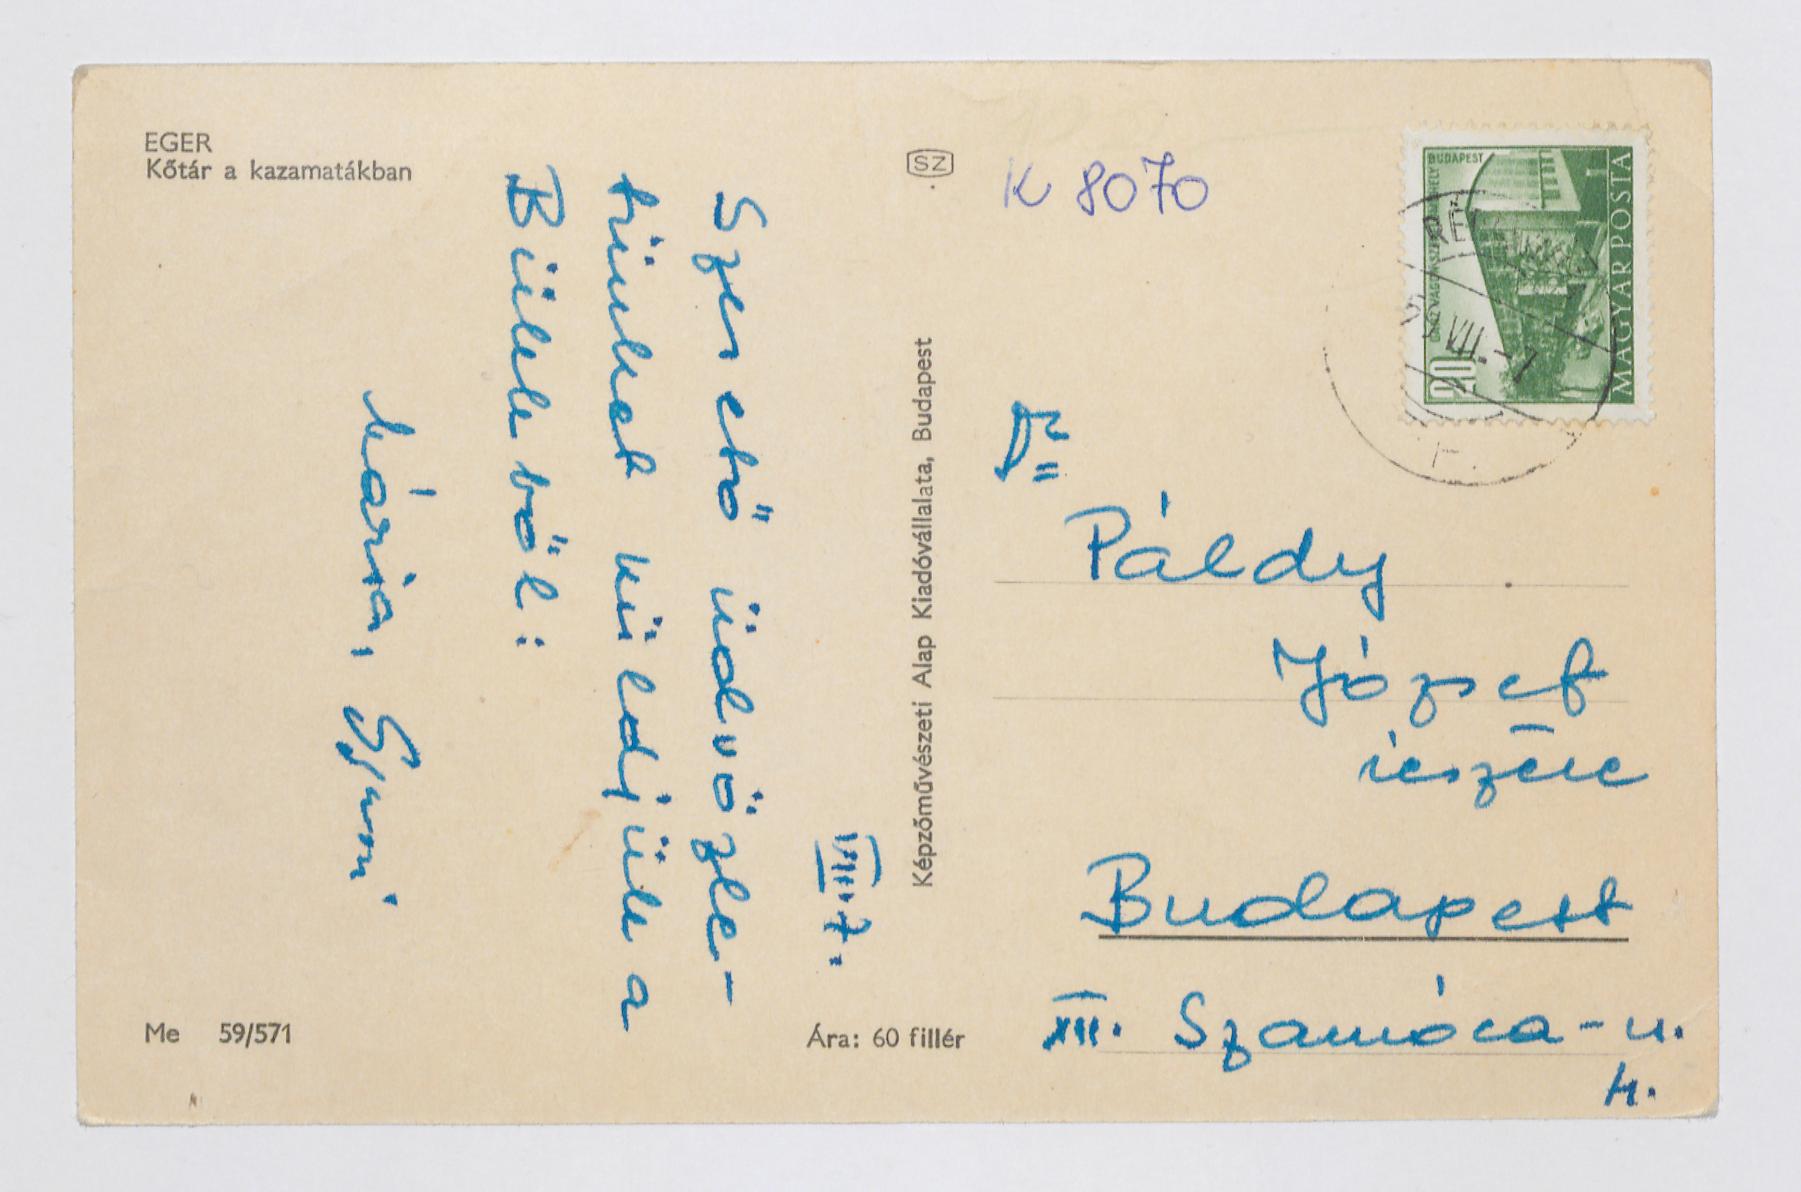 EGER
Kőtár a kazamatákban
SZ
K 8070
BUDAPEST
20
MAGYAR POSTA
VII. -7
VIII. 7.
Szerető üdvözle-
tünket küldjük a
Bükkből:
Mária, Gyuri
Képzőművészeti Alap Kiadóvállalata, Budapest
Dr
Páldy
József
részére
Budapest
XII. Szamóca-u.
4.
Me 59/571
Ára: 60 fillér